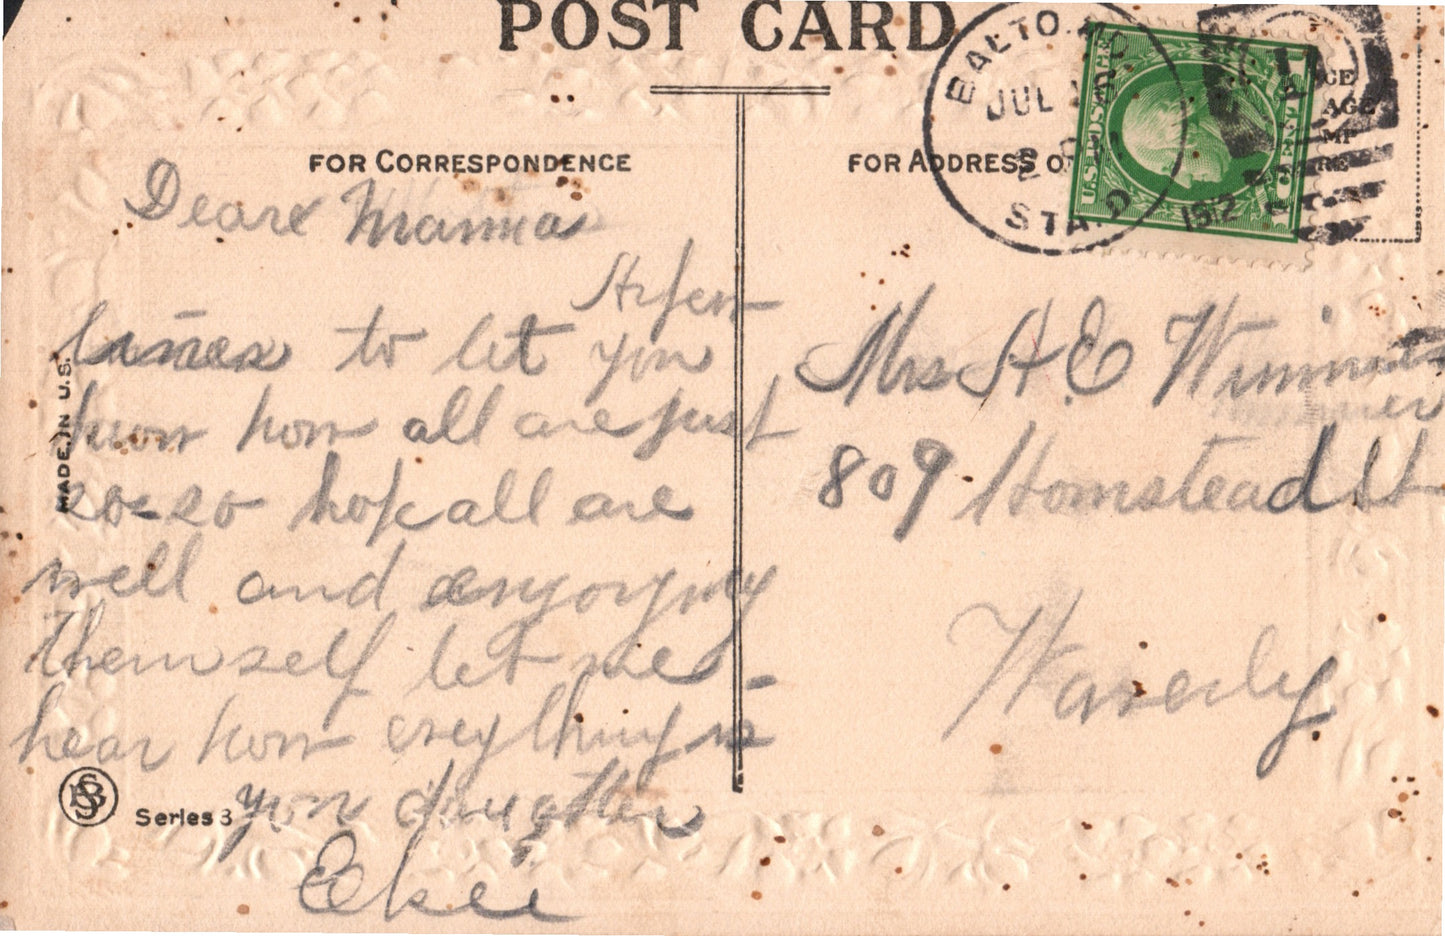 POST CARD
FOR CORRESPONDENCE
Dear Mamma
A few
lines to let you
know how all are just
so-so hope all are
well and enjoying
themself let me
hear how ereything is
your daugther
Elsie
MADE IN U.S.
SB
Series 3
FOR ADDRESS ON
BALTO. MD
JUL
1912
STA. D
U.S. POSTAGE
Mrs H. E Wimmer
809 Homstead St
Waverly